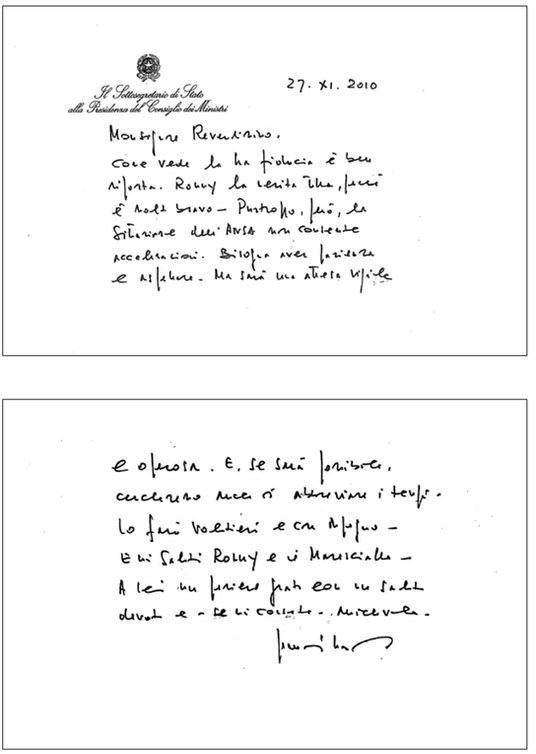 Il Sottosegretario di Stato
alla Presidenza del Consiglio dei Ministri
27. XI. 2010
Monsignore Reverendissimo,
come vede la sua fiducia è ben
riposta. Romy la merita tutta, perché
è molto bravo – Purtroppo, però, la
situazione dell'ANSA non consente
accelerazioni. Bisogna aver pazienza
e aspettare. Ma sarà una attesa vigile
e operosa. E, se sarà possibile,
cercheremo anche di abbreviare i tempi.
Lo farò volentieri e con impegno –
E mi saluti Romy e il Maresciallo –
A Lei un pensiero grato con un saluto
devoto e – se mi consente – amichevole.